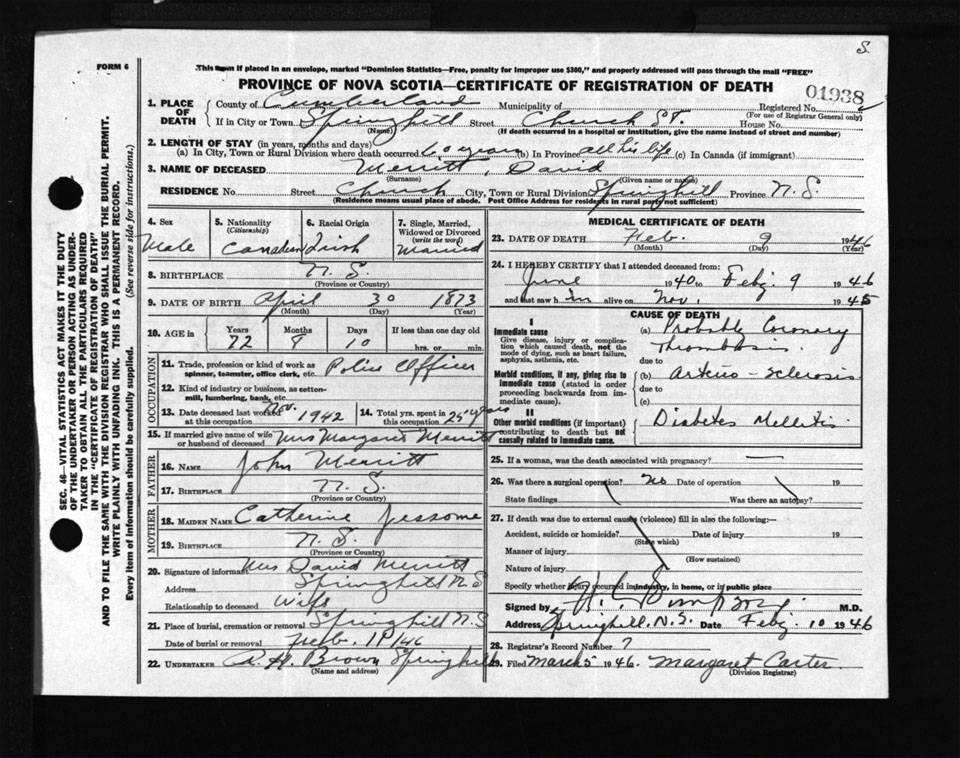 S.
FORM 6
This form if placed in an envelope, marked "Dominion Statistics—Free, penalty for improper use $300," and properly addressed will pass through the mail "FREE"
PROVINCE OF NOVA SCOTIA—CERTIFICATE OF REGISTRATION OF DEATH
01938
1. PLACE OF DEATH
County of Cumberland Municipality of Registered No.
(For use of Registrar General only)
If in City or Town Springhill Street Church ST. House No.
(Name) (If death occurred in a hospital or institution, give the name instead of street and number)
2. LENGTH OF STAY (in years, months and days)
(a) In City, Town or Rural Division where death occurred 60 years (b) In Province all his life (c) In Canada (if immigrant)
3. NAME OF DECEASED Merritt, David
(Surname) (Given name or names)
RESIDENCE No. Street Church City, Town or Rural Division Springhill Province N.S.
(Residence means usual place of abode. Post Office Address for residents in rural parts not sufficient)
4. Sex Male
5. Nationality (Citizenship) Canadian
6. Racial Origin Irish
7. Single, Married, Widowed or Divorced (write the word) Married
8. BIRTHPLACE N.S.
(Province or Country)
9. DATE OF BIRTH April 30 1873
(Month) (Day) (Year)
10. AGE in Years Months Days If less than one day old
72 8 10 hrs. or min.
OCCUPATION
11. Trade, profession or kind of work as spinner, teamster, office clerk, etc. Police Officer
12. Kind of industry or business, as cotten-mill, lumbering, bank, etc.
13. Date deceased last worked at this occupation Nov. 1942
14. Total yrs. spent in this occupation 25 years
15. If married give name of wife or husband of deceased Mrs Margaret Merritt
FATHER
16. NAME John Merritt
17. BIRTHPLACE N.S.
(Province or Country)
MOTHER
18. MAIDEN NAME Catherine Jessome
19. BIRTHPLACE N.S.
(Province or Country)
20. Signature of informant Mrs David Merritt
Address Springhill N.S
Relationship to deceased Wife
21. Place of burial, cremation or removal Springhill N.S
Date of burial or removal Feb. 11/46
22. UNDERTAKER A. H. Brown Springhill
(Name and address)
MEDICAL CERTIFICATE OF DEATH
23. DATE OF DEATH Feb. 9 1946
(Month) (Day) (Year)
24. I HEREBY CERTIFY that I attended deceased from:
June 1940 to Feby 9 1946
and last saw him alive on Nov. 1945
CAUSE OF DEATH
I
Immediate cause
Give disease, injury or complication which caused death, not the mode of dying, such as heart failure, asphyxia, asthenia, etc.
(a) Probably Coronary Thrombosis.
due to
Morbid conditions, if any, giving rise to immediate cause (stated in order proceeding backwards from immediate).
(b) Arterio-sclerosis
due to
(c)
II
Other morbid conditions (if important) contributing to death but not causally related to immediate cause.
Diabetes Mellitis
25. If a woman, was the death associated with pregnancy? —
26. Was there a surgical operation? No Date of operation 19
State findings Was there an autopsy?
27. If death was due to external causes (violence) fill in also the following:—
Accident, suicide or homicide? Date of injury 19
(State which)
Manner of injury
(How sustained)
Nature of injury
Specify whether injury occurred in industry, in home, or in public place
Signed by M.D.
Address Springhill, N.S. Date Feby 10 1946
28. Registrar's Record Number 7
29. Filed March 5 1946. Margaret Carter.
(Division Registrar)
SEC. 46—VITAL STATISTICS ACT MAKES IT THE DUTY
OF THE UNDERTAKER OR PERSON ACTING AS UNDER-
TAKER TO OBTAIN ALL THE PARTICULARS REQUIRED
IN THE "CERTIFICATE OF REGISTRATION OF DEATH"
AND TO FILE THE SAME WITH THE DIVISION REGISTRAR WHO SHALL ISSUE THE BURIAL PERMIT.
WRITE PLAINLY WITH UNFADING INK. THIS IS A PERMANENT RECORD.
Every item of information should be carefully supplied. (See reverse side for instructions.)